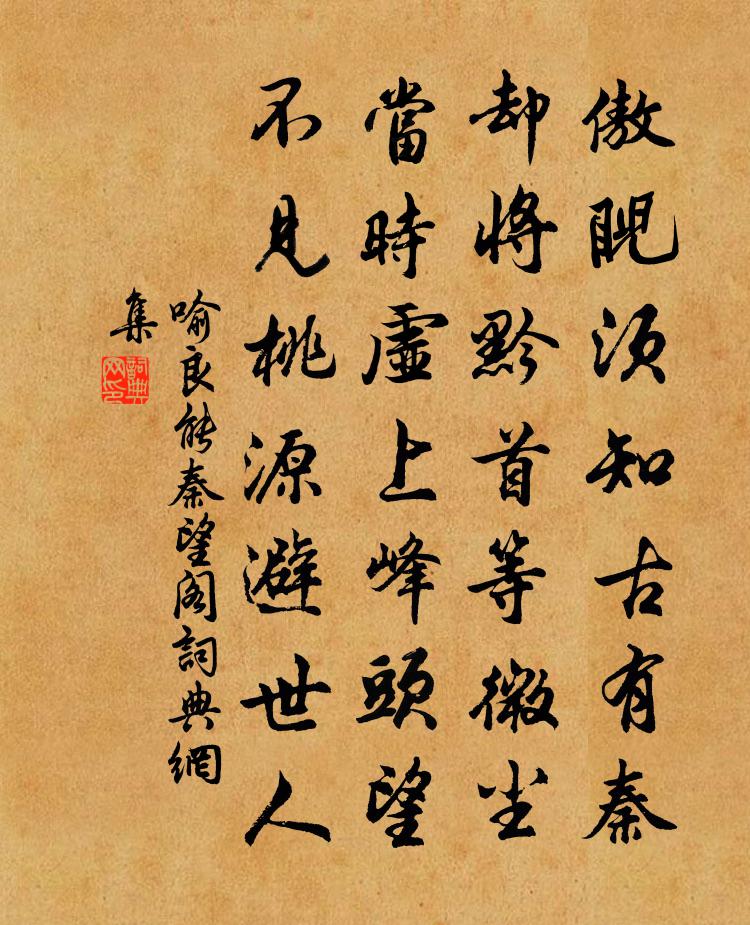 傲睨須知古有秦
却將黔首等微塵
當時虛上峰頭望
不見桃源避世人
喻良能秦望閣詞典網
集
詞典
网印